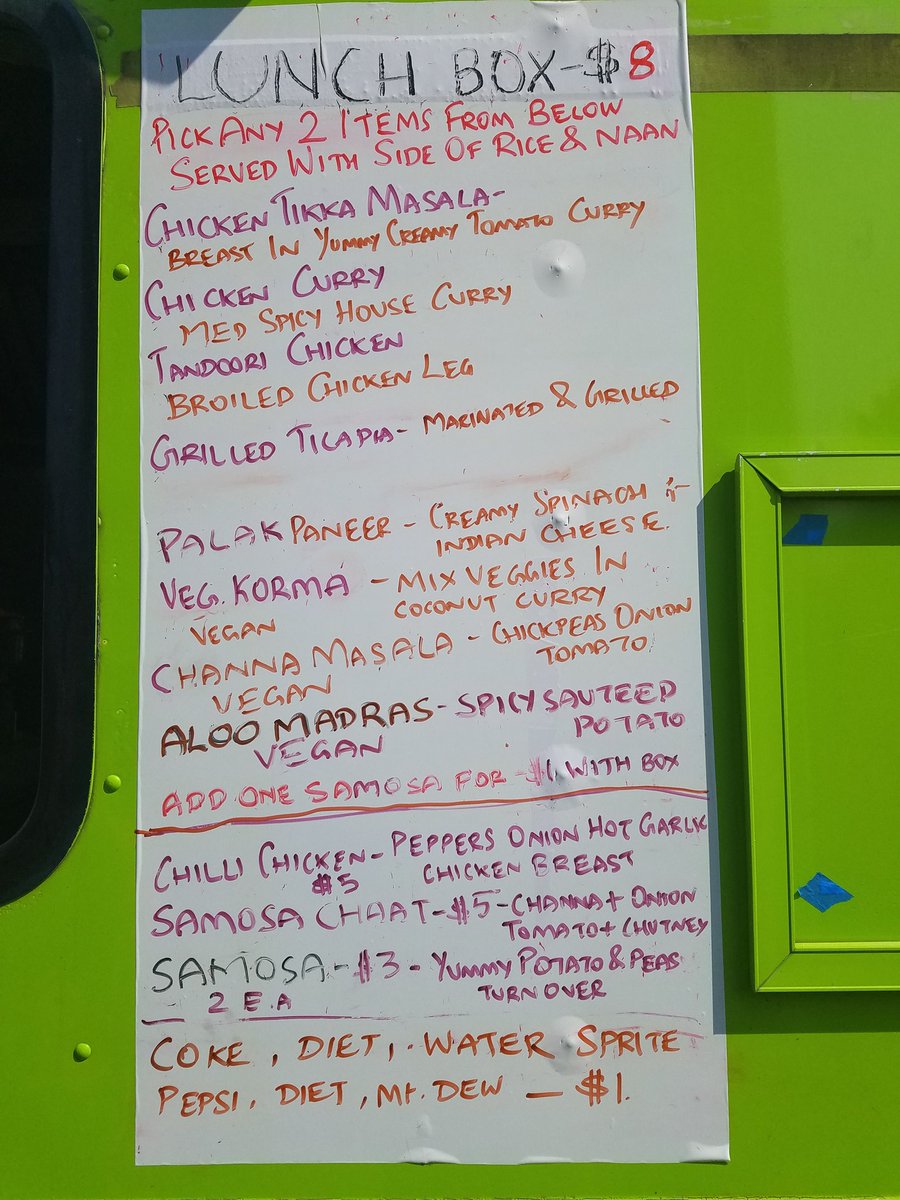 LUNCH BOX-$8
PICK ANY 2 ITEMS FROM BELOW
SERVED WITH SIDE OF RICE & NAAN
CHICKEN TIKKA MASALA-
BREAST IN YUMMY CREAMY TOMATO CURRY
CHICKEN CURRY
MED SPICY HOUSE CURRY
TANDOORI CHICKEN
BROILED CHICKEN LEG
GRILLED TILAPIA- MARINATED & GRILLED
PALAK PANEER - CREAMY SPINACH &
INDIAN CHEESE.
VEG. KORMA - MIX VEGGIES IN
COCONUT CURRY
VEGAN
CHANNA MASALA - CHICKPEAS ONION
TOMATO
VEGAN
ALOO MADRAS - SPICY SAUTEED
POTATO
VEGAN
ADD ONE SAMOSA FOR -$1 WITH BOX
CHILLI CHICKEN - PEPPERS ONION HOT GARLIC
$5 CHICKEN BREAST
SAMOSA CHAAT-$5-CHANNA+ ONION
TOMATO+ CHUTNEY
SAMOSA-$3 - YUMMY POTATO & PEAS
2 E.A TURN OVER
COKE, DIET, WATER SPRITE
PEPSI, DIET, Mt. DEW - $1.